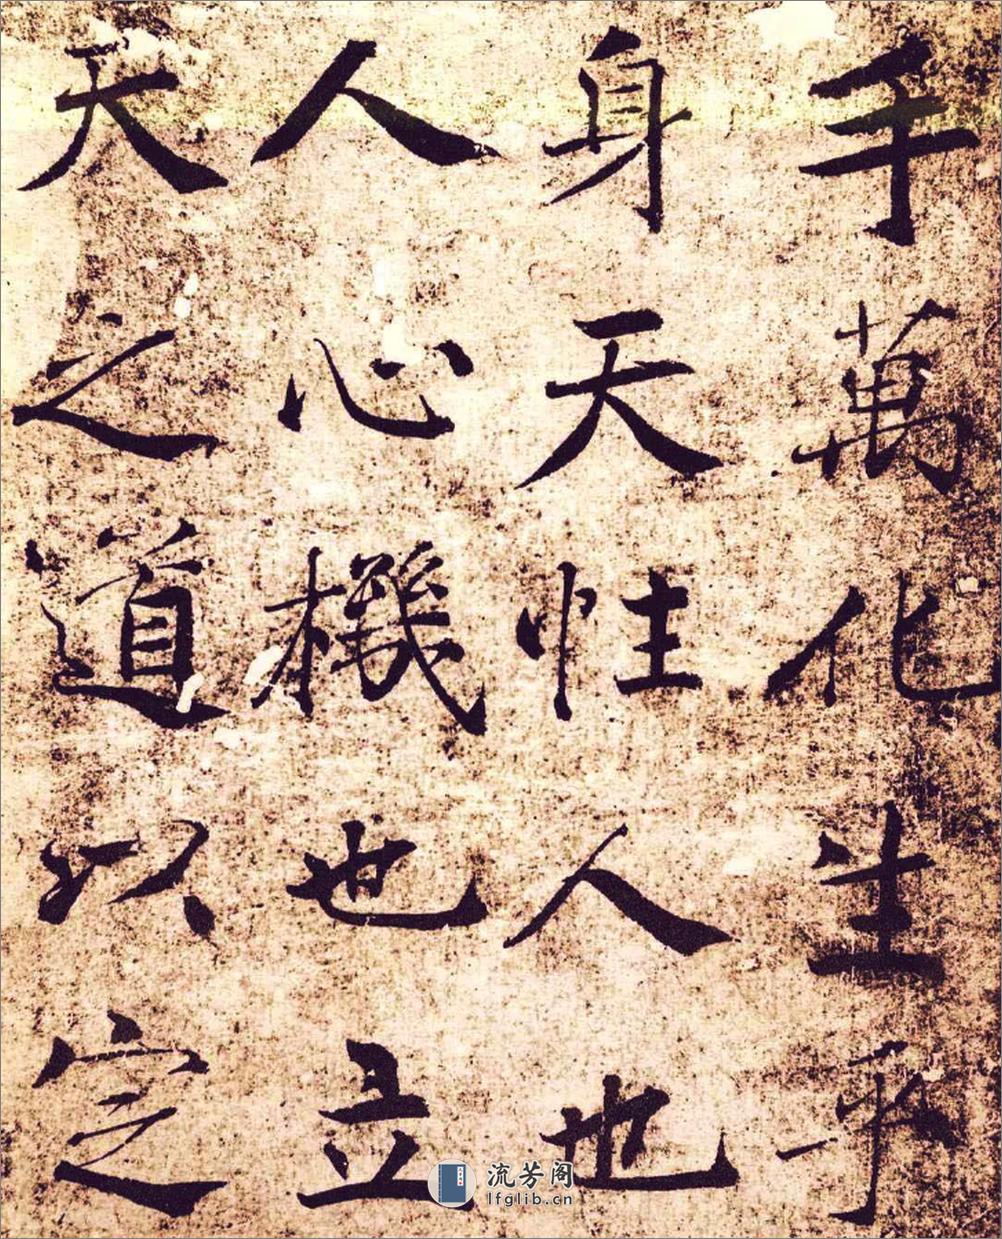 手萬化生乎
身天性人也
人心機也立
天之道以定
流芳阁
lfglib.cn